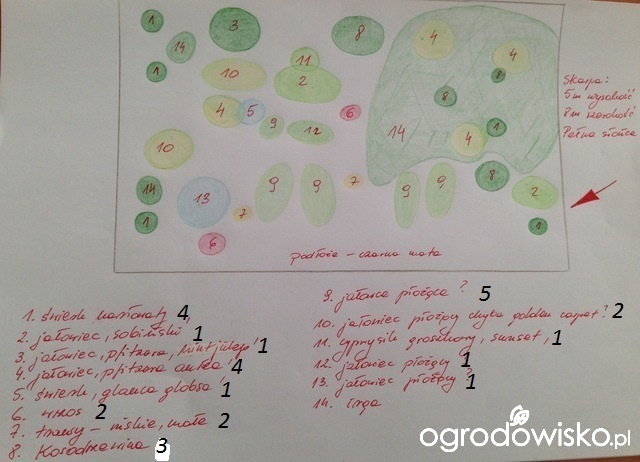 1 14 3 8 4 4
11
1 10 2 8
4 5 6 8
9 12 14 4 1
10
14 13 7 9 9 7 9 9 8 2
1 6 1
Skarpa:
5m wysokość
8m szerokość
Pełne słońce
podłoże - czarna mata
1. świerk 4
2. jałoniec, sabiński, 1
3. jałoniec, pfitzera, mint julep' 1
4. jałoniec, pfitzera aurea' 4
5. świerk, glauca globosa' 1
6. wrzos 2
7. trawy - niskie, małe 2
8. Kosodrzewina 3
9. jałonce płożące ? 5
10. jałoniec płożący chyba golden carpet? 2
11. cyprysik groszkowy, sunset, 1
12. jałoniec płożący 1
13. jałoniec płożący? 1
14. irga
ogrodowisko.pl